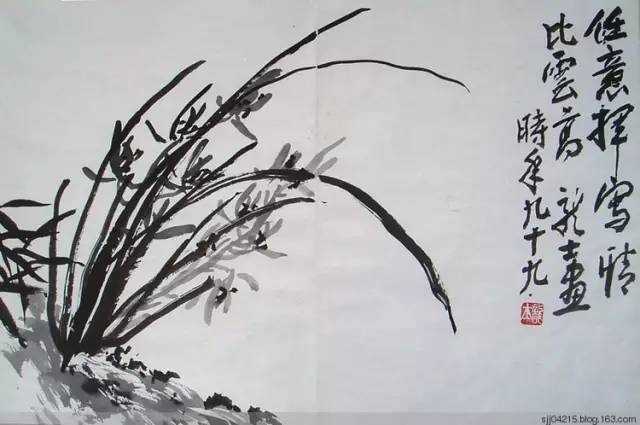 任意揮寫情
比雲高 畫
時年九十九
sjj04215.blog.163.com